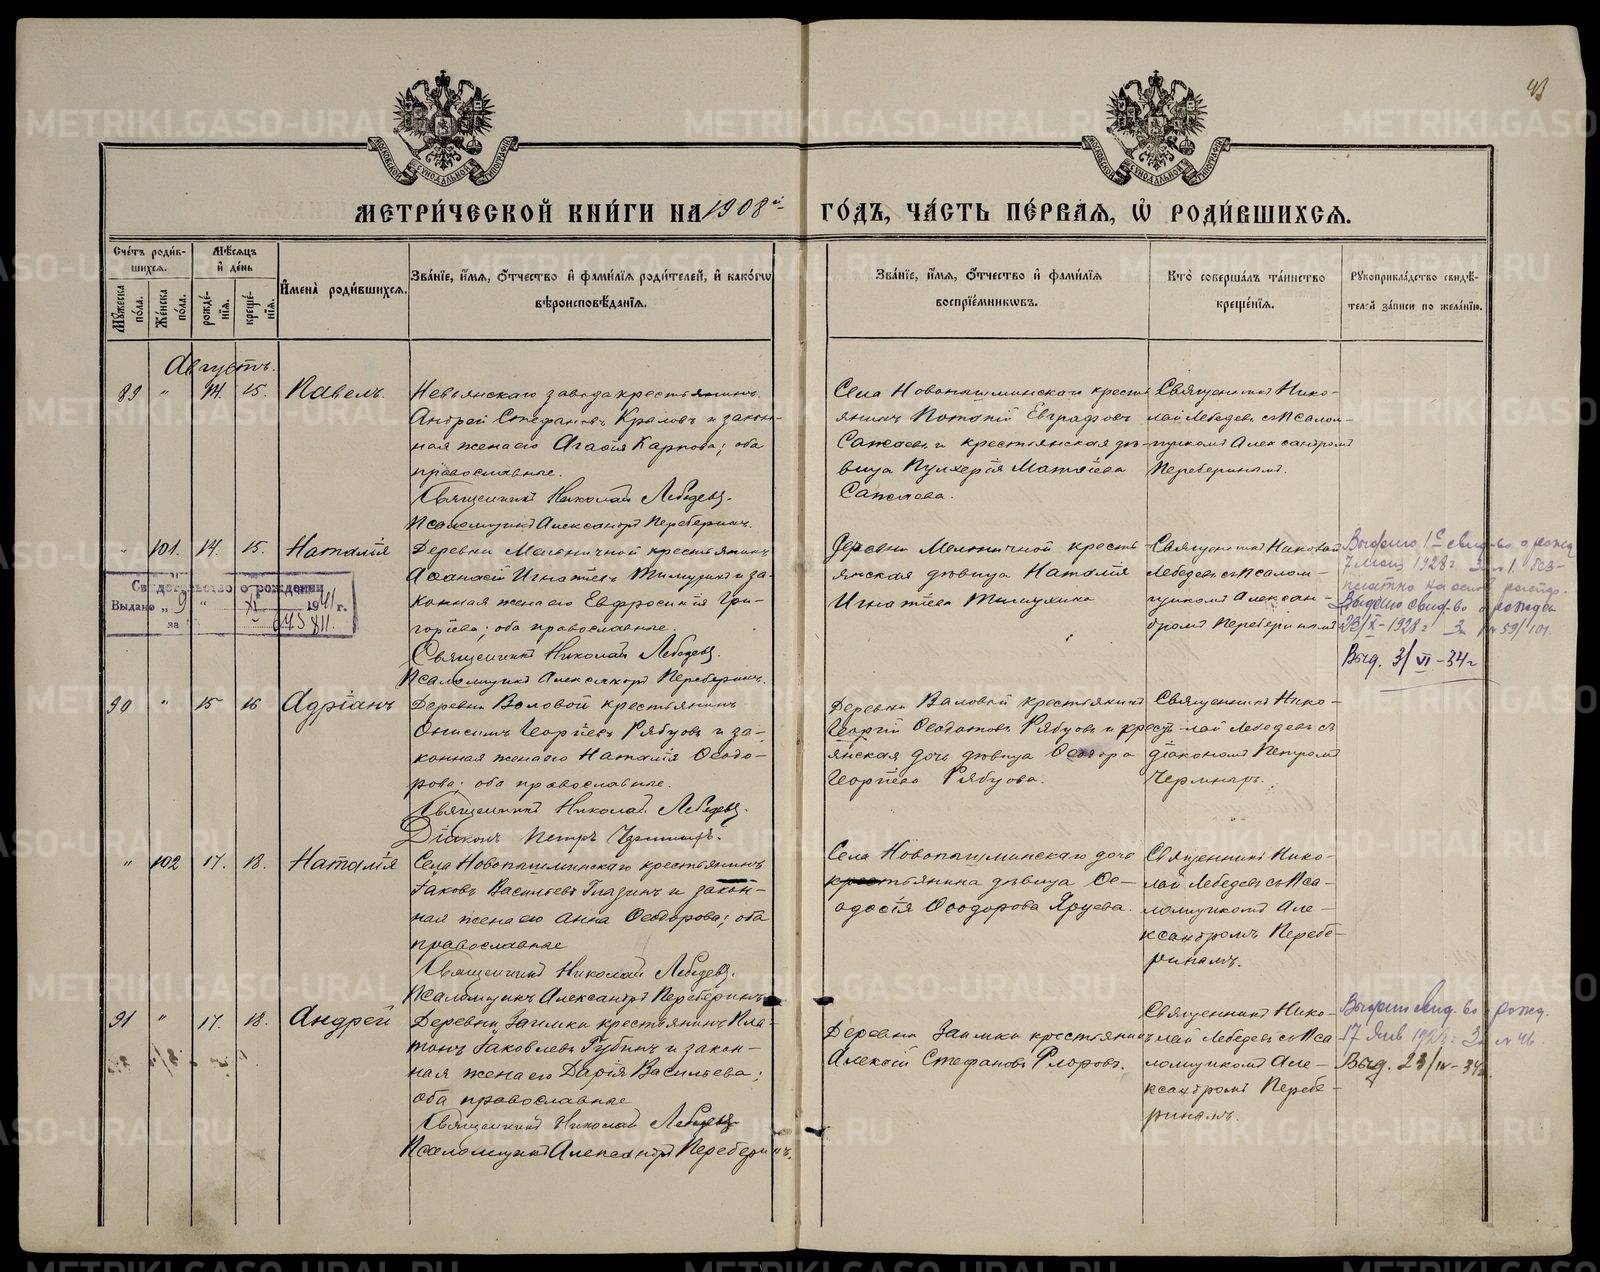 43
МОСКОВСКОЙ СѴНОДАЛЬНОЙ ТИПОГРАФІИ
МОСКОВСКОЙ СѴНОДАЛЬНОЙ ТИПОГРАФІИ
МЕТРИ́ЧЕСКОЙ КНИ́ГИ НА 1908й ГО́ДЪ, ЧА́СТЬ ПЕ́РВАѦ, Ѽ РОДИ́ВШИХСѦ.
Счéтъ роди́в-
шихсѧ.
Мѣ́сѧцъ
и҆ дéнь
Мꙋ́жеска
по́ла.
Жéнска
по́ла.
рождé-
нїѧ.
крещé-
нїѧ.
И҆мена̀ роди́вшихсѧ.
Зва́нїе, и҆́мѧ, ѻ҆́тчество и҆ фами́лїѧ роди́телей, и҆ како́гѡ
вѣроисповѣ́данїѧ.
Зва́нїе, и҆́мѧ, ѻ҆́тчество и҆ фами́лїѧ
воспрїе́мникѡвъ.
Кто̀ соверша́лъ та́инство
крещéнїѧ.
Рꙋкоприкла́дство свидѣ́-
телей за́писи по жела́нїю.
Августъ.
89 " 14. 15. Павелъ.
Невьянскаго завода крестьянинъ
Андрей Стефановъ Крыловъ и закон-
ная жена его Агафія Карпова; оба
православные.
Священникъ Николай Лебедевъ.
Псаломщикъ Александръ Переберинъ.
Села Новопышминскаго кресть-
янинъ Потапій Евграфовъ
Сажаевъ и крестьянская дѣ-
вица Пулхерія Матѳіева
Сажаева.
Священникъ Нико-
лай Лебедевъ съ псалом-
щикомъ Александромъ
Переберинымъ.
" 101. 14. 15. Наталія
Деревни Мельничной крестьянинъ
Аѳанасій Игнатіевъ Тимухинъ и за-
конная жена его Евфросинія Гри-
горіева; оба православные.
Священникъ Николай Лебедевъ.
Псаломщикъ Александръ Переберинъ.
Деревни Мельничной кресть-
янская дѣвица Наталія
Игнатіева Тимухина
Священникъ Николай
Лебедевъ съ псалом-
щикомъ Алексан-
дромъ Переберинымъ
Выдано 1е свид-во о рожд
1928 г. За № 1. Без-
платно
Выдано свид-во о рожден
23/X-1928 г. За № 59/101.
Выд. 3/VI-34 г
Свидетельство о рождении
Выдано „ 9 " XI 1941 г.
за
90 " 15 16 Адріанъ
Деревни Валовой крестьянинъ
Онисимъ Георгіевъ Рябухъ и за-
конная жена его Наталія Ѳеодо-
рова; оба православные.
Священникъ Николай Лебедевъ.
Діаконъ Петръ Чермныхъ.
Деревни Валовой крестьянинъ
Георгій Ѳеодотовъ и кресть-
янская дочь дѣвица Ѳеодора
Георгіева
Священникъ Нико-
лай Лебедевъ съ
діакономъ Петромъ
" 102 17. 18. Наталія
Села Новопышминскаго крестьянинъ
Іаковъ Васильевъ Глазинъ и закон-
ная жена его Анна Ѳеодорова; оба
православные
Священникъ Николай Лебедевъ.
Псаломщикъ Александръ Переберинъ
Села Новопышминскаго дочь
крестьянина дѣвица Ѳе-
одосія Ѳеодорова Ярцева.
Священникъ Нико-
лай Лебедевъ съ Пса-
ломщикомъ Але-
ксандромъ Перебе-
ринымъ.
91 " 17. 18. Андрей
Деревни Заимки крестьянинъ Пла-
тонъ Іаковлевъ Губинъ и закон-
ная жена его Дарія Васильева;
оба православные
Священникъ Николай Лебедевъ
Псаломщикъ Александръ Переберинъ.
Деревни Заимки крестьянинъ
Алексій Стефановъ Флоровъ.
Священникъ Нико-
лай Лебедевъ съ Пса
ломщикомъ Але-
ксандромъ Перебе-
ринымъ.
Выдано свид-во о рожд.
17 Янв За № 46.
Выд. 23/IV-34г
METRIKI.GASO-URAL.RU